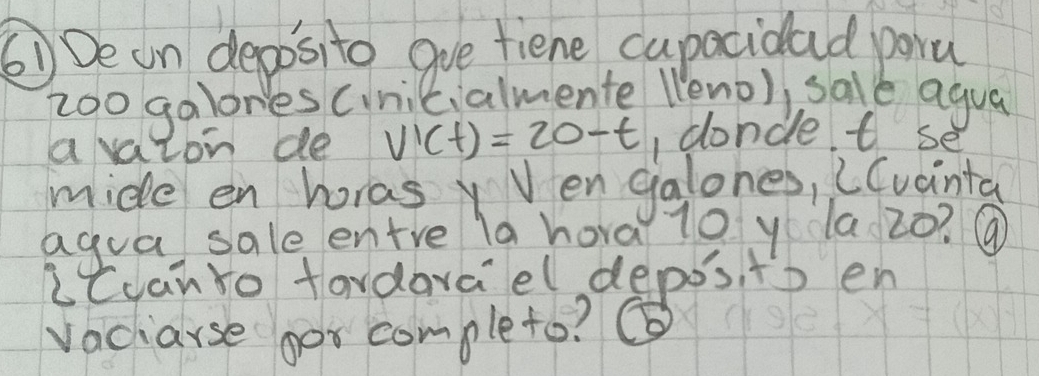 61) De un depósito que tiene capacidad para
200 galones (inicialmente lleno), sale agua
a razón de V'(t) = 20-t, donde t se
mide en horas y V en galones, ¿Cuánta
agua sale entre la hora 10 y la 20? ⓐ
¿Cuánto tardará el depósito en
vaciarse por completo? ⓑ